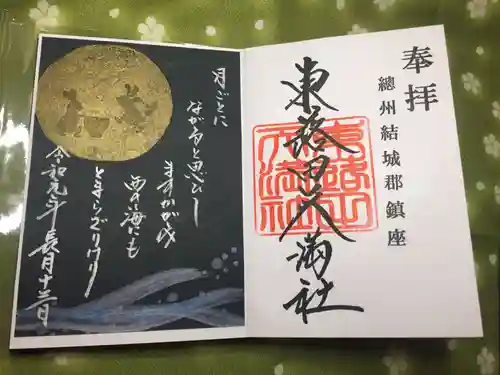 奉拝
總州結城郡鎮座
東蕗田天満社
東蕗田
天満社
月ごとに
ながると思ひし
ますかがみ
西の海にも
とまらざりけり
令和元年長月十三日